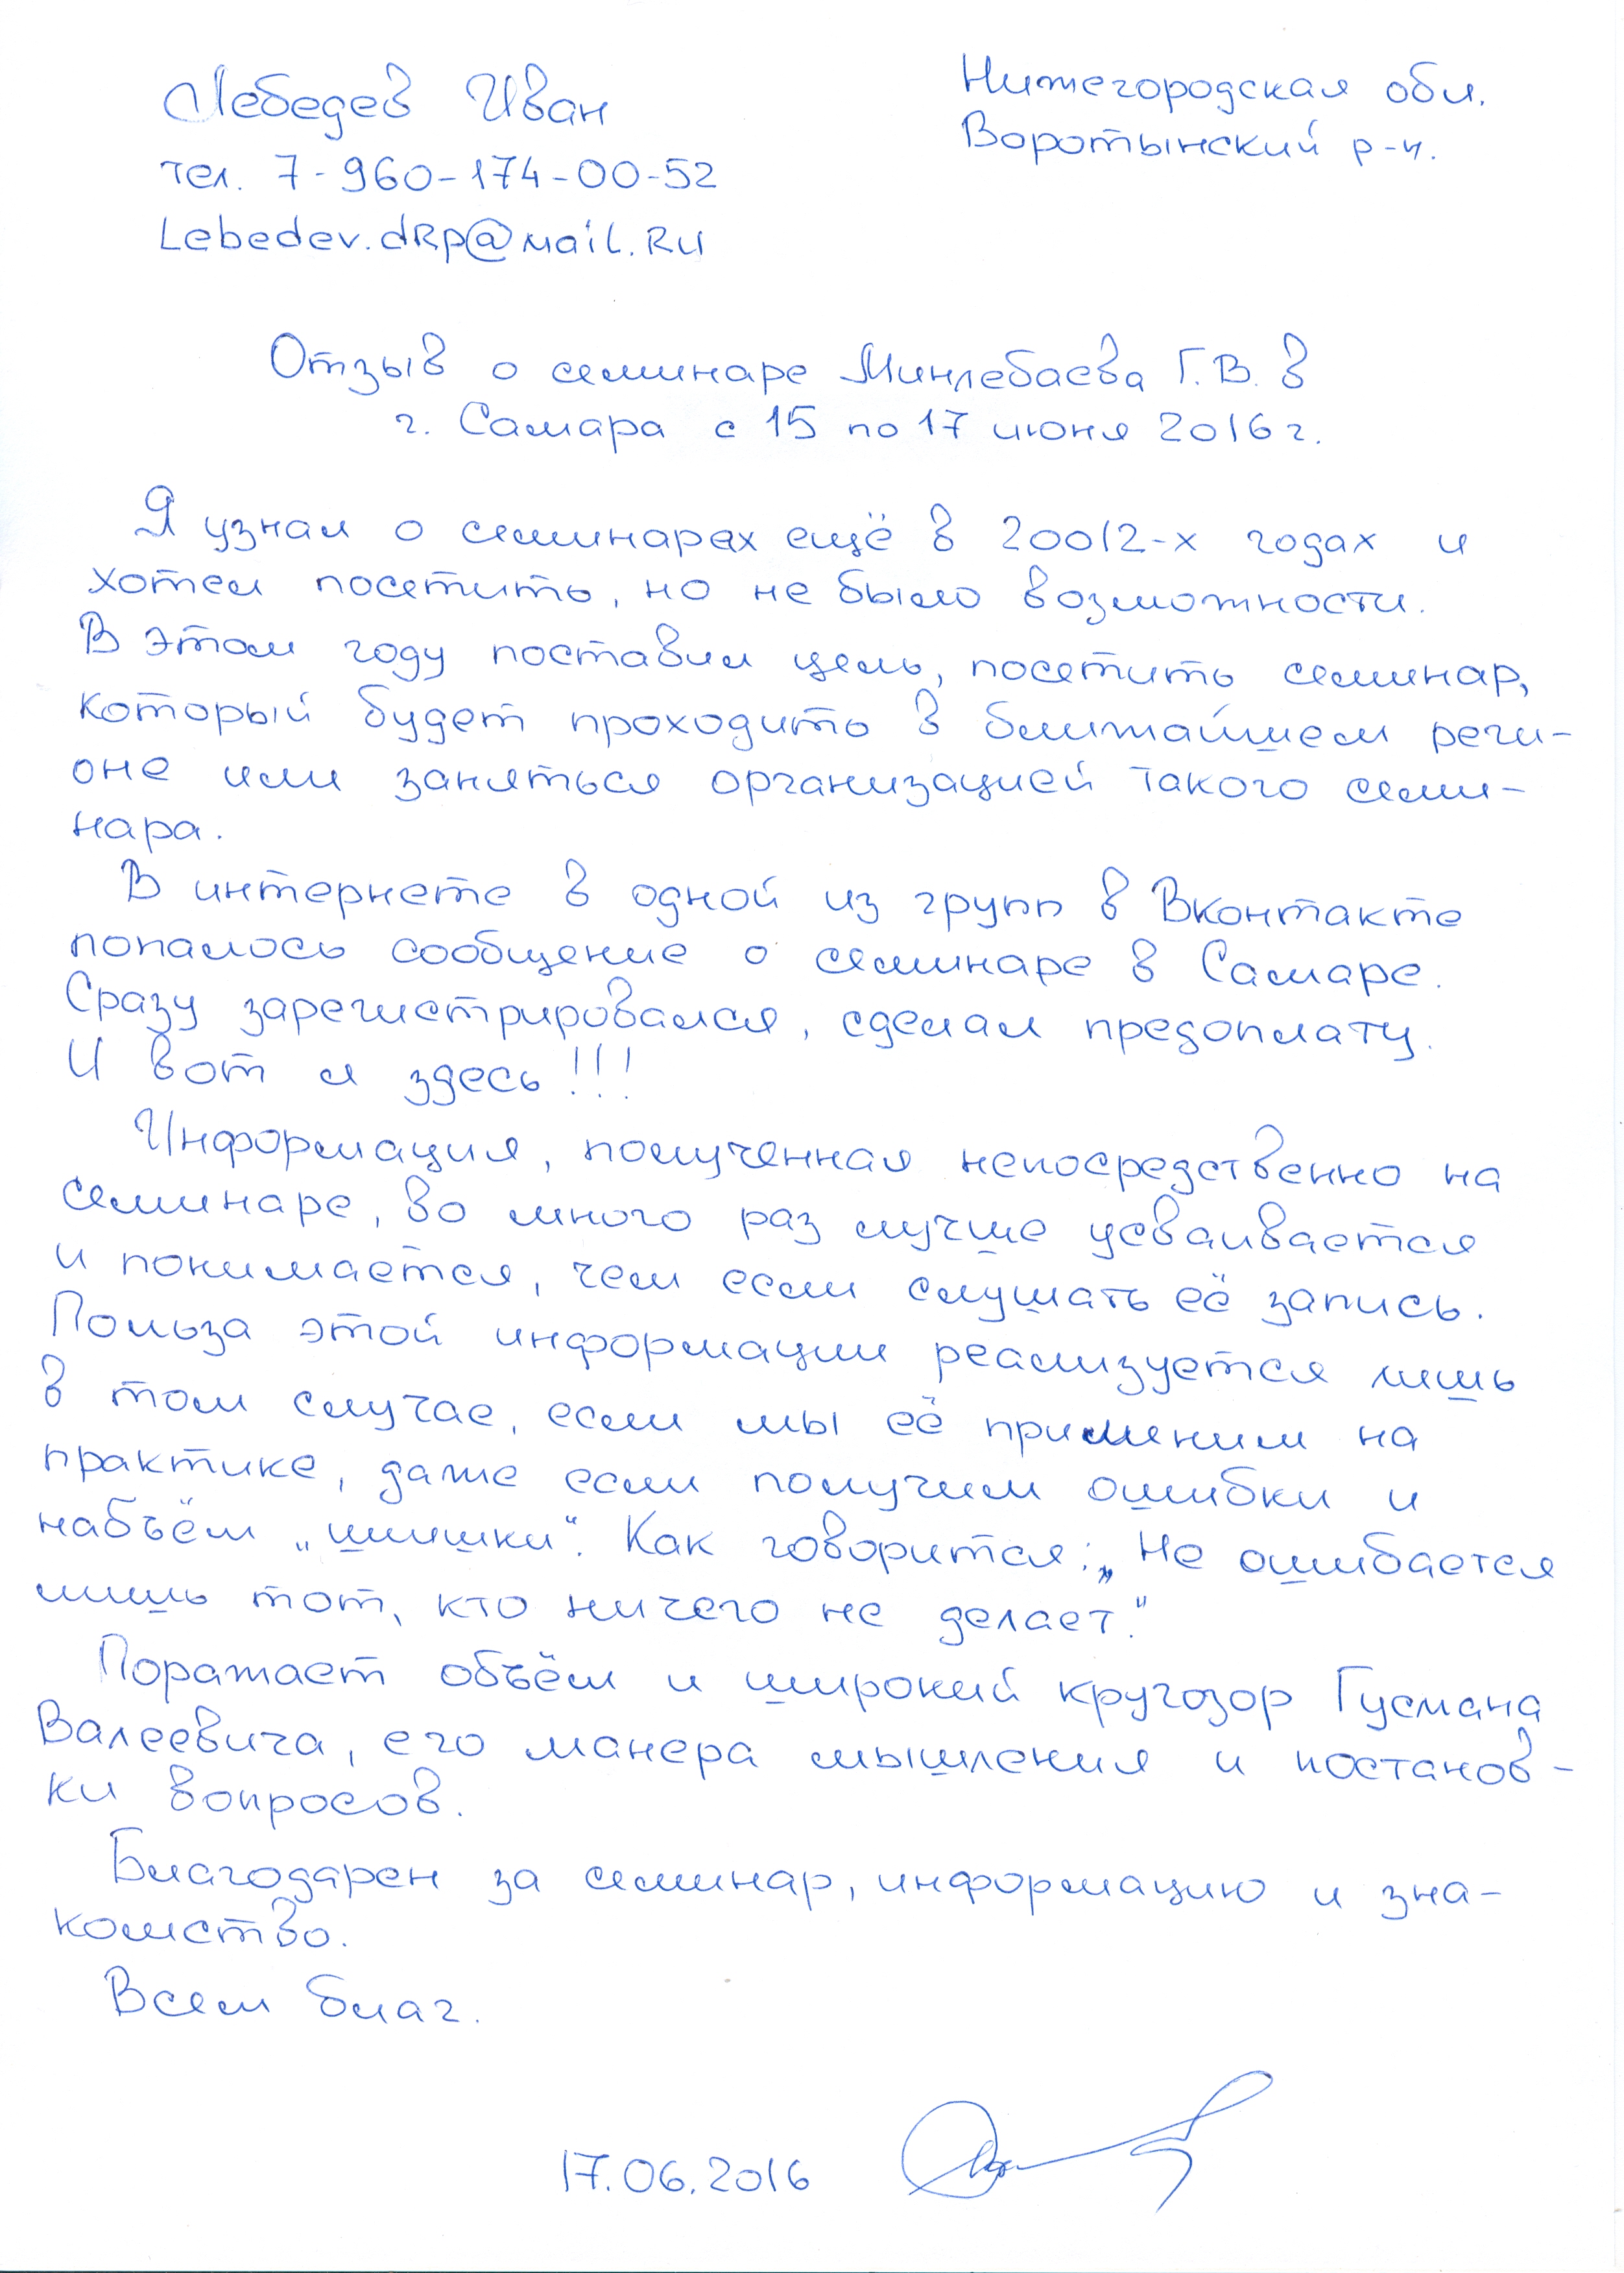 Лебедев Иван
Нижегородская обл.
Воротынский р-н.
тел. 7-960-174-00-52
Lebedev.dRp@mail.Ru
Отзыв о семинаре Минлебаева Г.В. в
г. Самара с 15 по 17 июня 2016 г.
Я узнал о семинарах ещё в 20012-х годах и
хотел посетить, но не было возможности.
В этом году поставил цель, посетить семинар,
который будет проходить в ближайшем реги-
оне или заняться организацией такого семи-
нара.
В интернете в одной из групп в Вконтакте
попалось сообщение о семинаре в Самаре.
Сразу зарегистрировался, сделал предоплату.
И вот я здесь!!!
Информация, полученная непосредственно на
семинаре, во много раз лучше усваивается
и понимается, чем если слушать её запись.
Польза этой информации реализуется лишь
в том случае, если мы её применим на
практике, даже если получим ошибки и
набъём „шишки“. Как говорится: „Не ошибается
лишь тот, кто ничего не делает."
Поражает объём и широкий кругозор Гусмана
Валеевича, его манера мышления и постанов-
ки вопросов.
Благодарен за семинар, информацию и зна-
комство.
Всем благ.
17.06.2016